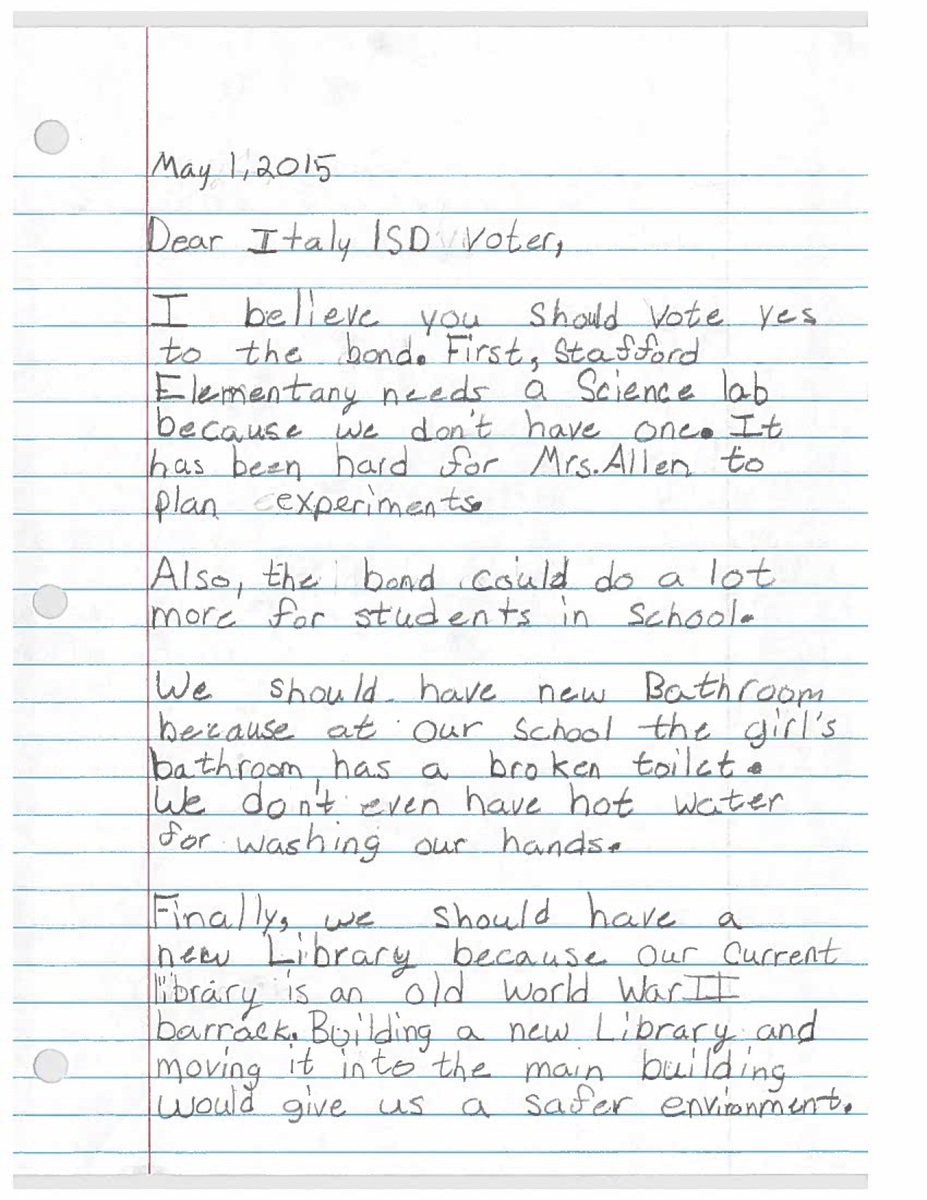 May 1, 2015
Dear Italy ISD Voter,
I believe you should vote yes
to the bond. First, Stafford
Elementany needs a Science lab
because we don't have one. It
has been hard for Mrs. Allen to
plan experiments.
Also, the bond could do a lot
more for students in School.
We should have new Bathroom
because at our school the girl's
bathroom has a broken toilet.
We don't even have hot water
for washing our hands.
Finally, we should have a
new Library because our current
library is an old World War II
barrack. Building a new Library and
moving it into the main building
would give us a safer environment.